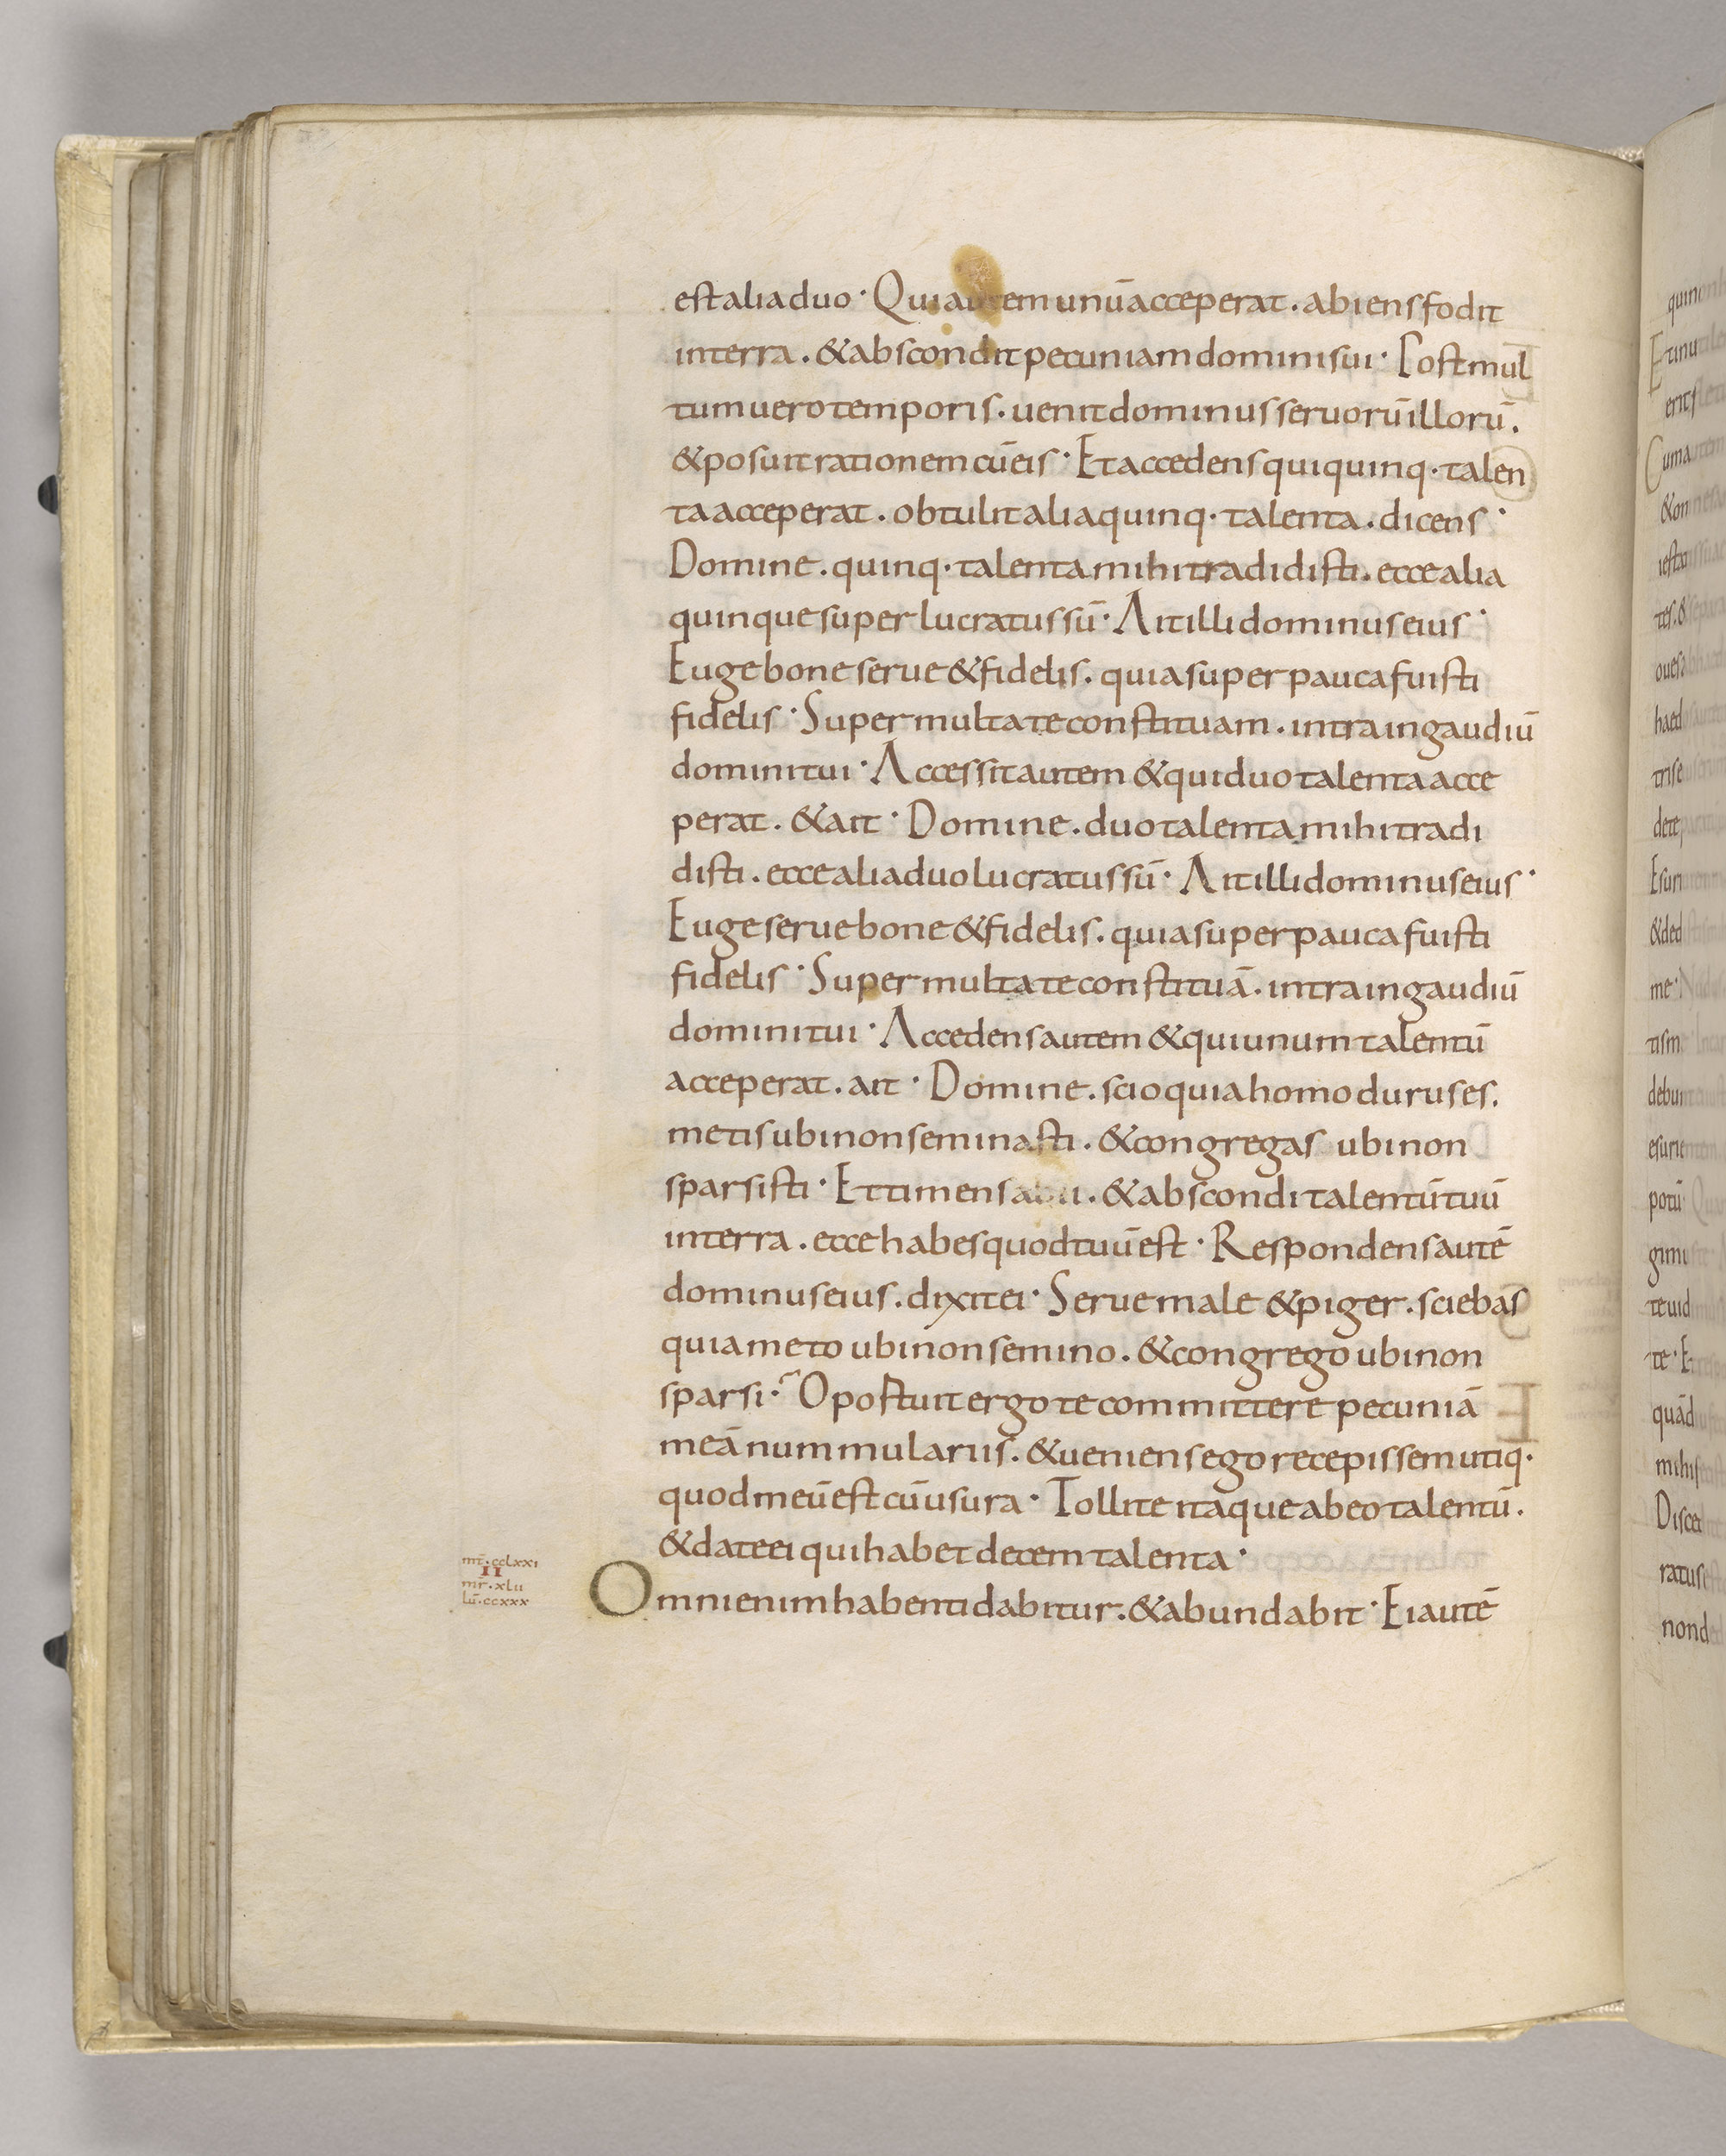 est alia duo · Qui autem unū acceperat . abiens fodit
in terra . & abscondit pecuniam domini sui · Post mul
tum uero temporis . uenit dominus seruorū illorū .
& posuit rationem cū eis · Et accedens qui quinq· talen
ta acceperat . obtulit alia quinq· talenta . dicens ·
Domine . quinq· talenta mihi tradidisti . ecce alia
quinque super lucratus sū · Ait illi dominus eius ·
Euge bone serue & fidelis . quia super pauca fuisti
fidelis · Super multa te constituam . intra in gaudiū
domini tui · Accessit autem & qui duo talenta acce
perat . & ait · Domine . duo talenta mihi tradi
disti . ecce alia duo lucratus sū · Ait illi dominus eius ·
Euge serue bone & fidelis . quia super pauca fuisti
fidelis · Super multa te constituā . intra in gaudiū
domini tui · Accedens autem & qui unum talentū
acceperat . ait · Domine . scio quia homo durus es .
metis ubi non seminasti . & congregas ubi non
sparsisti · Et timens abii . & abscondi talentū tuū
in terra . ecce habes quod tuū est · Respondens autē
dominus eius . dixit ei · Serue male & piger . sciebas
quia meto ubi non semino . & congrego ubi non
sparsi · Opo͛tuit ergo te committere pecuniā
meā nummulariis . & ueniens ego recepissem utiq·
quod meū est cū usura · Tollite itaque ab eo talentū .
& date ei qui habet decem talenta ·
mt̄ . cclxxi
II
mr . xlii
lū . ccxxx
Omni enim habenti dabitur . & abundabit · Ei autē